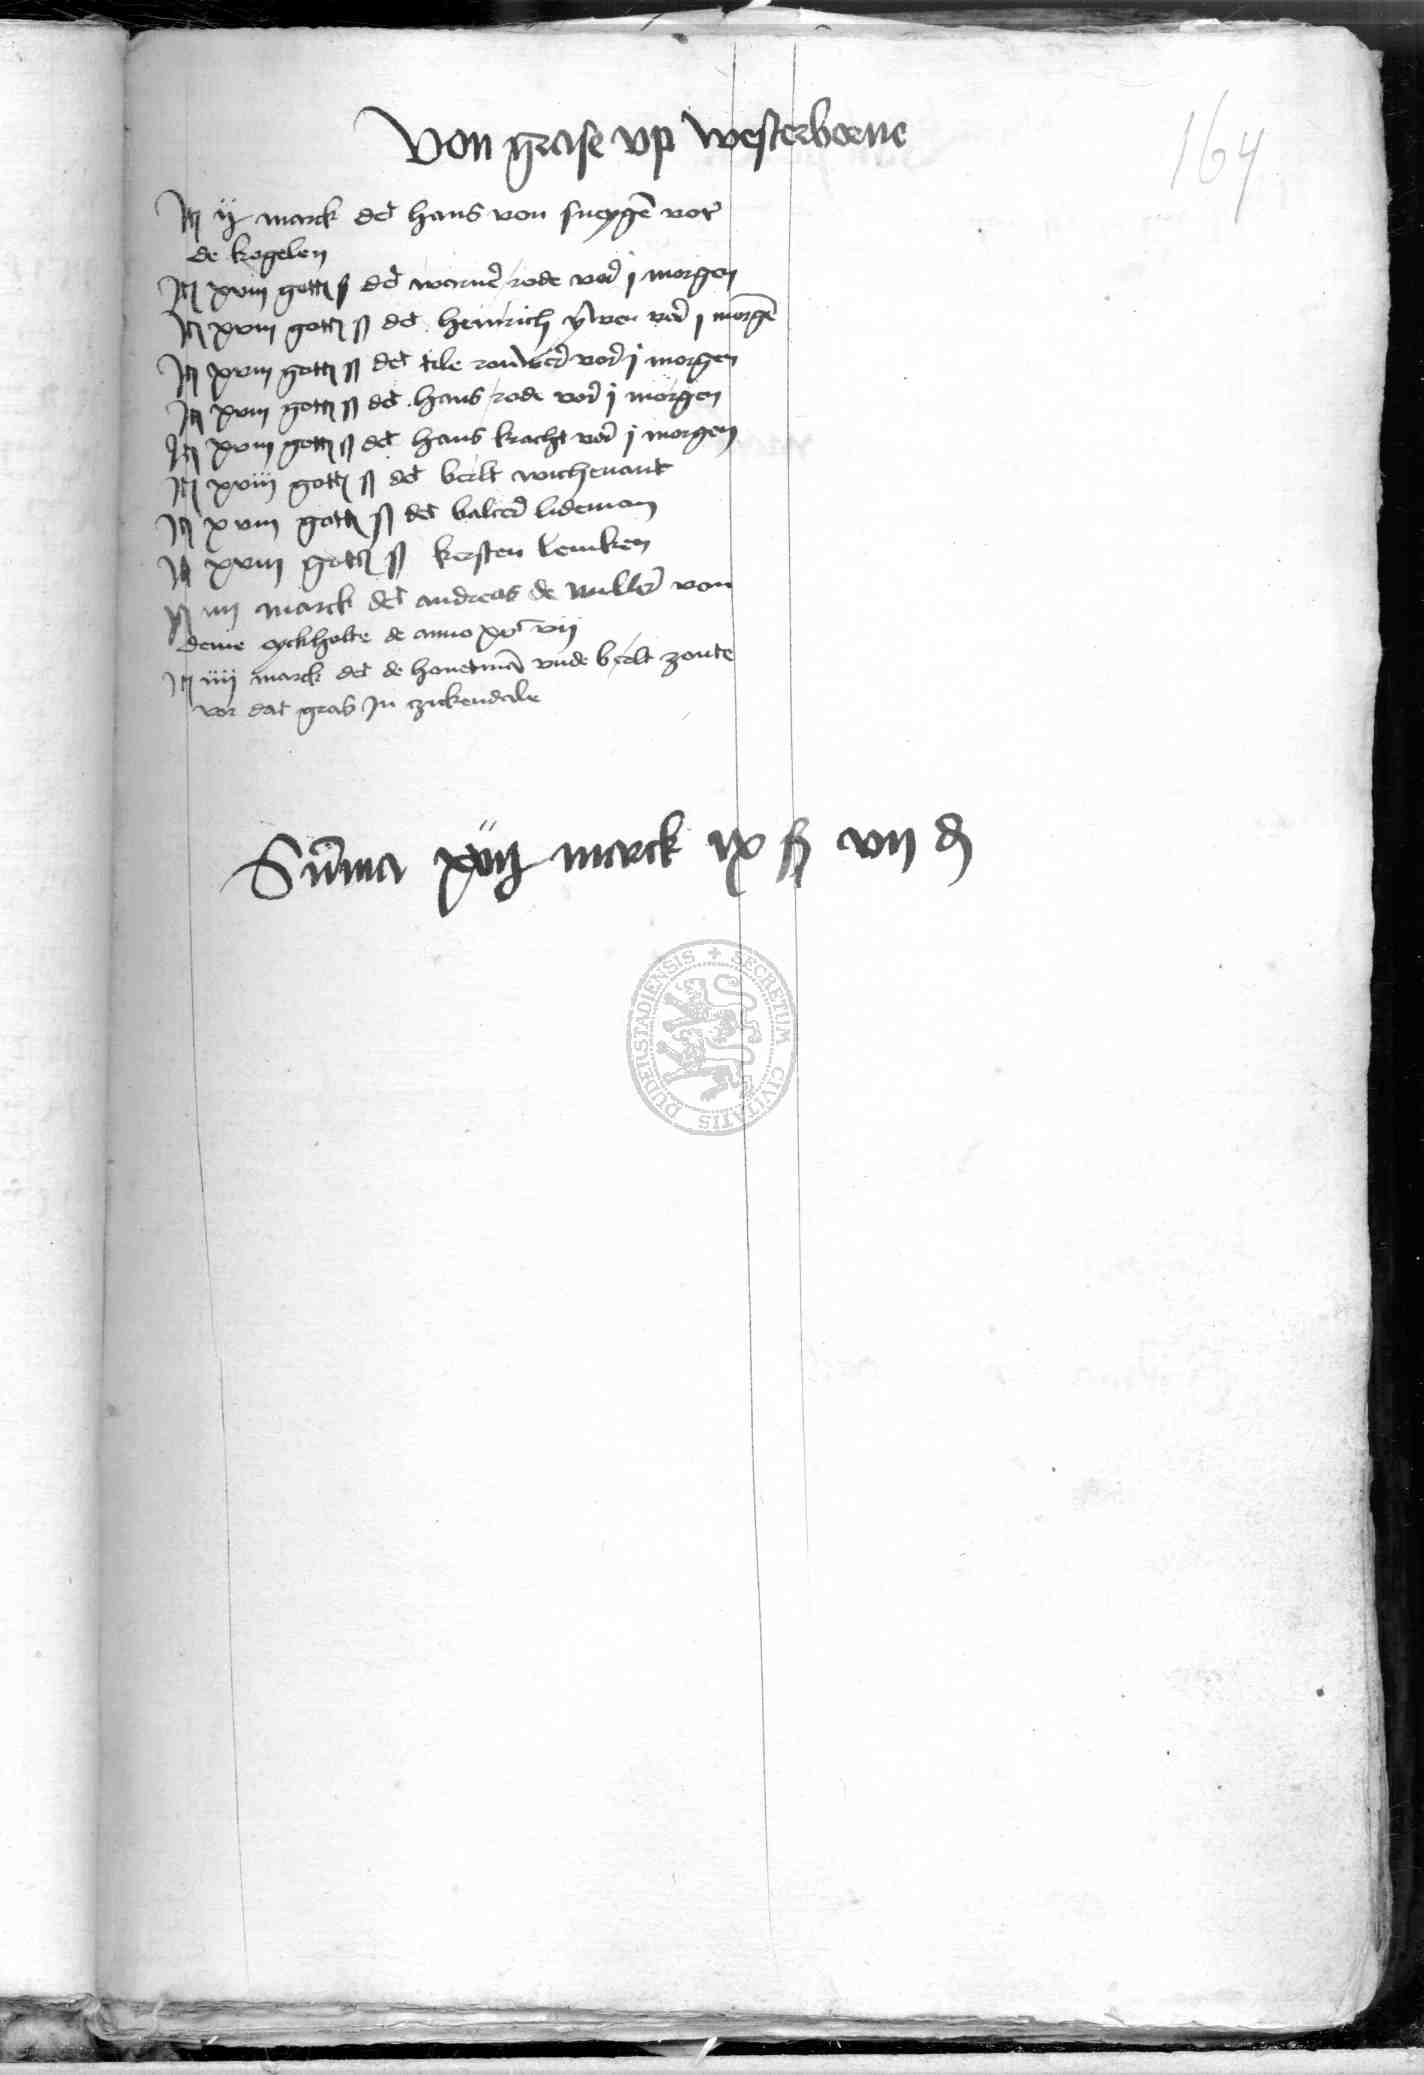 Von grase vp westerborne
164
Itm ij marck dedt hans von sneygē vor
de kogelen
Itm xviij gott ß dedt warner rode vor j morgen
Itm xviij gott ß dedt heinrich ywen vor j morgē
Itm xviij gott ß dedt tile vor j morgen
Itm xviij gott ß dedt hans rode vor j morgen
Itm xviij gott ß dedt hans kracht vor j morgen
Itm xviij gott ß dedt bertt wichenant
Itm xviij gott ß dedt balcer lideman
Itm xviij gott ß kersten lemken
Itm iiij marck dedt andreas de muller von
deme eyckholte de anno xvᶜ vij
Itm iiij marck dedt de honetmā vnde bertt zonte
vor dat gras In zickendale
Sūma marck ix ß vij d
DUDERSTADIENSIS + SECRETUM CIVITATIS